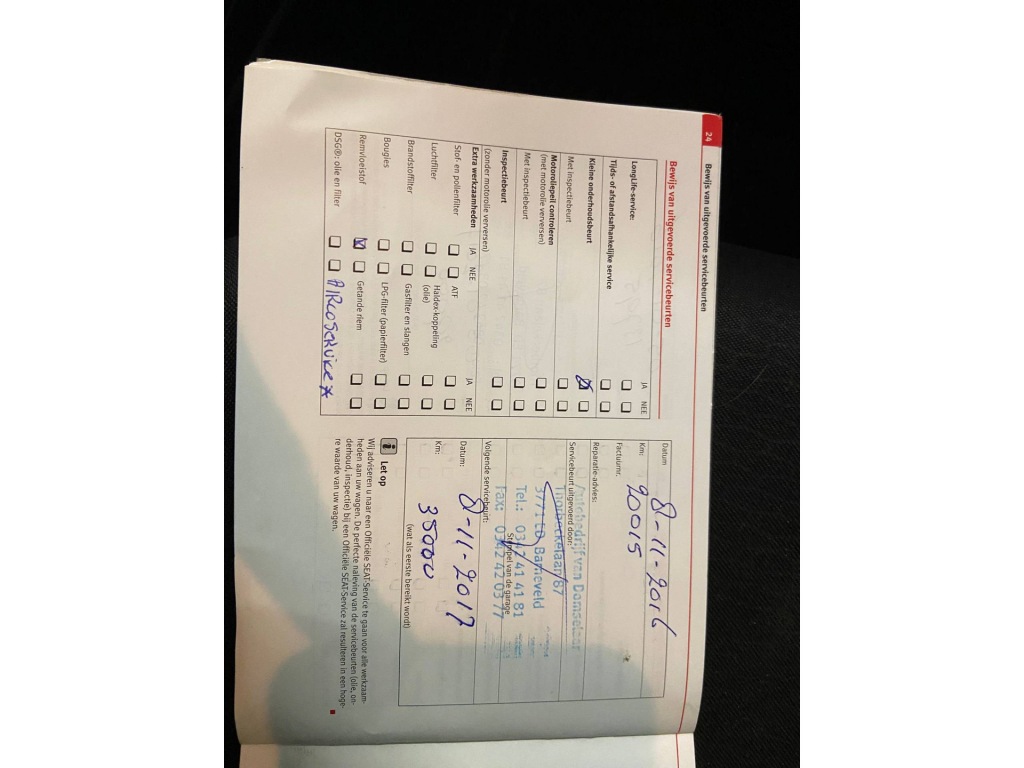 24
Bewijs van uitgevoerde servicebeurten
Bewijs van uitgevoerde servicebeurten
JA NEE
LongLife-service:
Tijds- of afstandsafhankelijke service
Kleine onderhoudsbeurt
Met inspectiebeurt
Motoroliepeil controleren
(met motorolie verversen)
Met inspectiebeurt
Inspectiebeurt
(zonder motorolie verversen)
Extra werkzaamheden JA NEE JA NEE
Stof- en pollenfilter ATF
Luchtfilter Haldex-koppeling
(olie)
Brandstoffilter Gasfilter en slangen
Bougies LPG-filter (papierfilter)
Remvloeistof Getande riem
DSG®: olie en filter AIRCOSERVICE *
Datum 8-11-2016
Km: 20015
Factuurnr.
Reparatie-advies:
Servicebeurt uitgevoerd door:
Autobedrijf van Domselaar
Thorbeckelaan 87
3771 ED Barneveld
Tel.: 0342 41 41 81
Stempel van de garage
Fax: 0342 42 03 77
Volgende servicebeurt:
Datum: 8-11-2017
Km: 35000
(wat als eerste bereikt wordt)
i Let op
Wij adviseren u naar een Officiële SEAT-Service te gaan voor alle werkzaam-
heden aan uw wagen. De perfecte naleving van de servicebeurten (olie, on-
derhoud, inspectie) bij een Officiële SEAT-Service zal resulteren in een hoge-
re waarde van uw wagen.